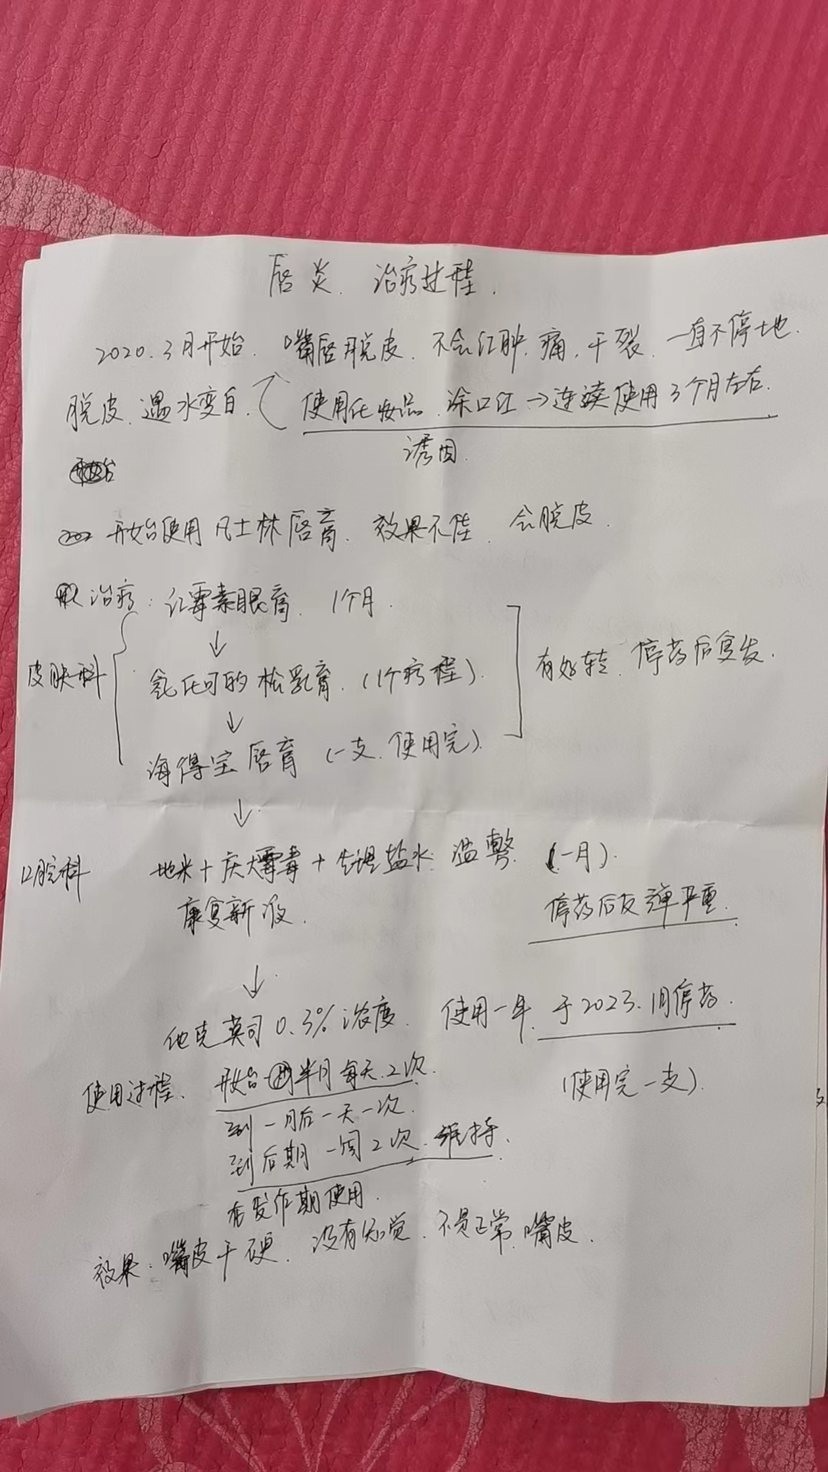 唇炎. 治疗过程.
2020.3月开始. 嘴唇脱皮. 不会红肿. 痛. 干裂. 一直不停地.
脱皮. 遇水变白. 使用化妆品. 涂口红→连续使用3个月左右.
诱因
开始使用凡士林唇膏. 效果不佳. 会脱皮.
治疗: 红霉素眼膏. 1个月.
↓
皮肤科 氢化可的松乳膏. (1个疗程). 有好转. 停药后复发.
↓
海得宝唇膏 (一支. 使用完).
↓
口腔科 地米+庆大霉毒+生理盐水 湿敷. (一月).
康复新液. 停药后反弹严重.
↓
他克莫司0.3%浓度. 使用一年. 于2023.1月停药.
使用过程. 开始 半月每天2次. (使用完一支).
到一月后一天一次.
到后期一周2次. 维持.
发作期使用.
效果: 嘴皮干硬. 没有知觉. 不是正常嘴皮.